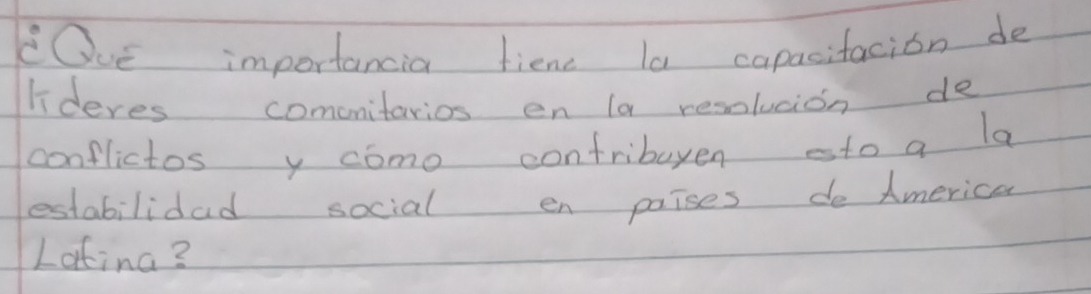 ¿Qué importancia tiene la capacitación de
líderes comunitarios en la resolución de
conflictos y cómo contribuyen esto a la
estabilidad social en países de America
Latina?